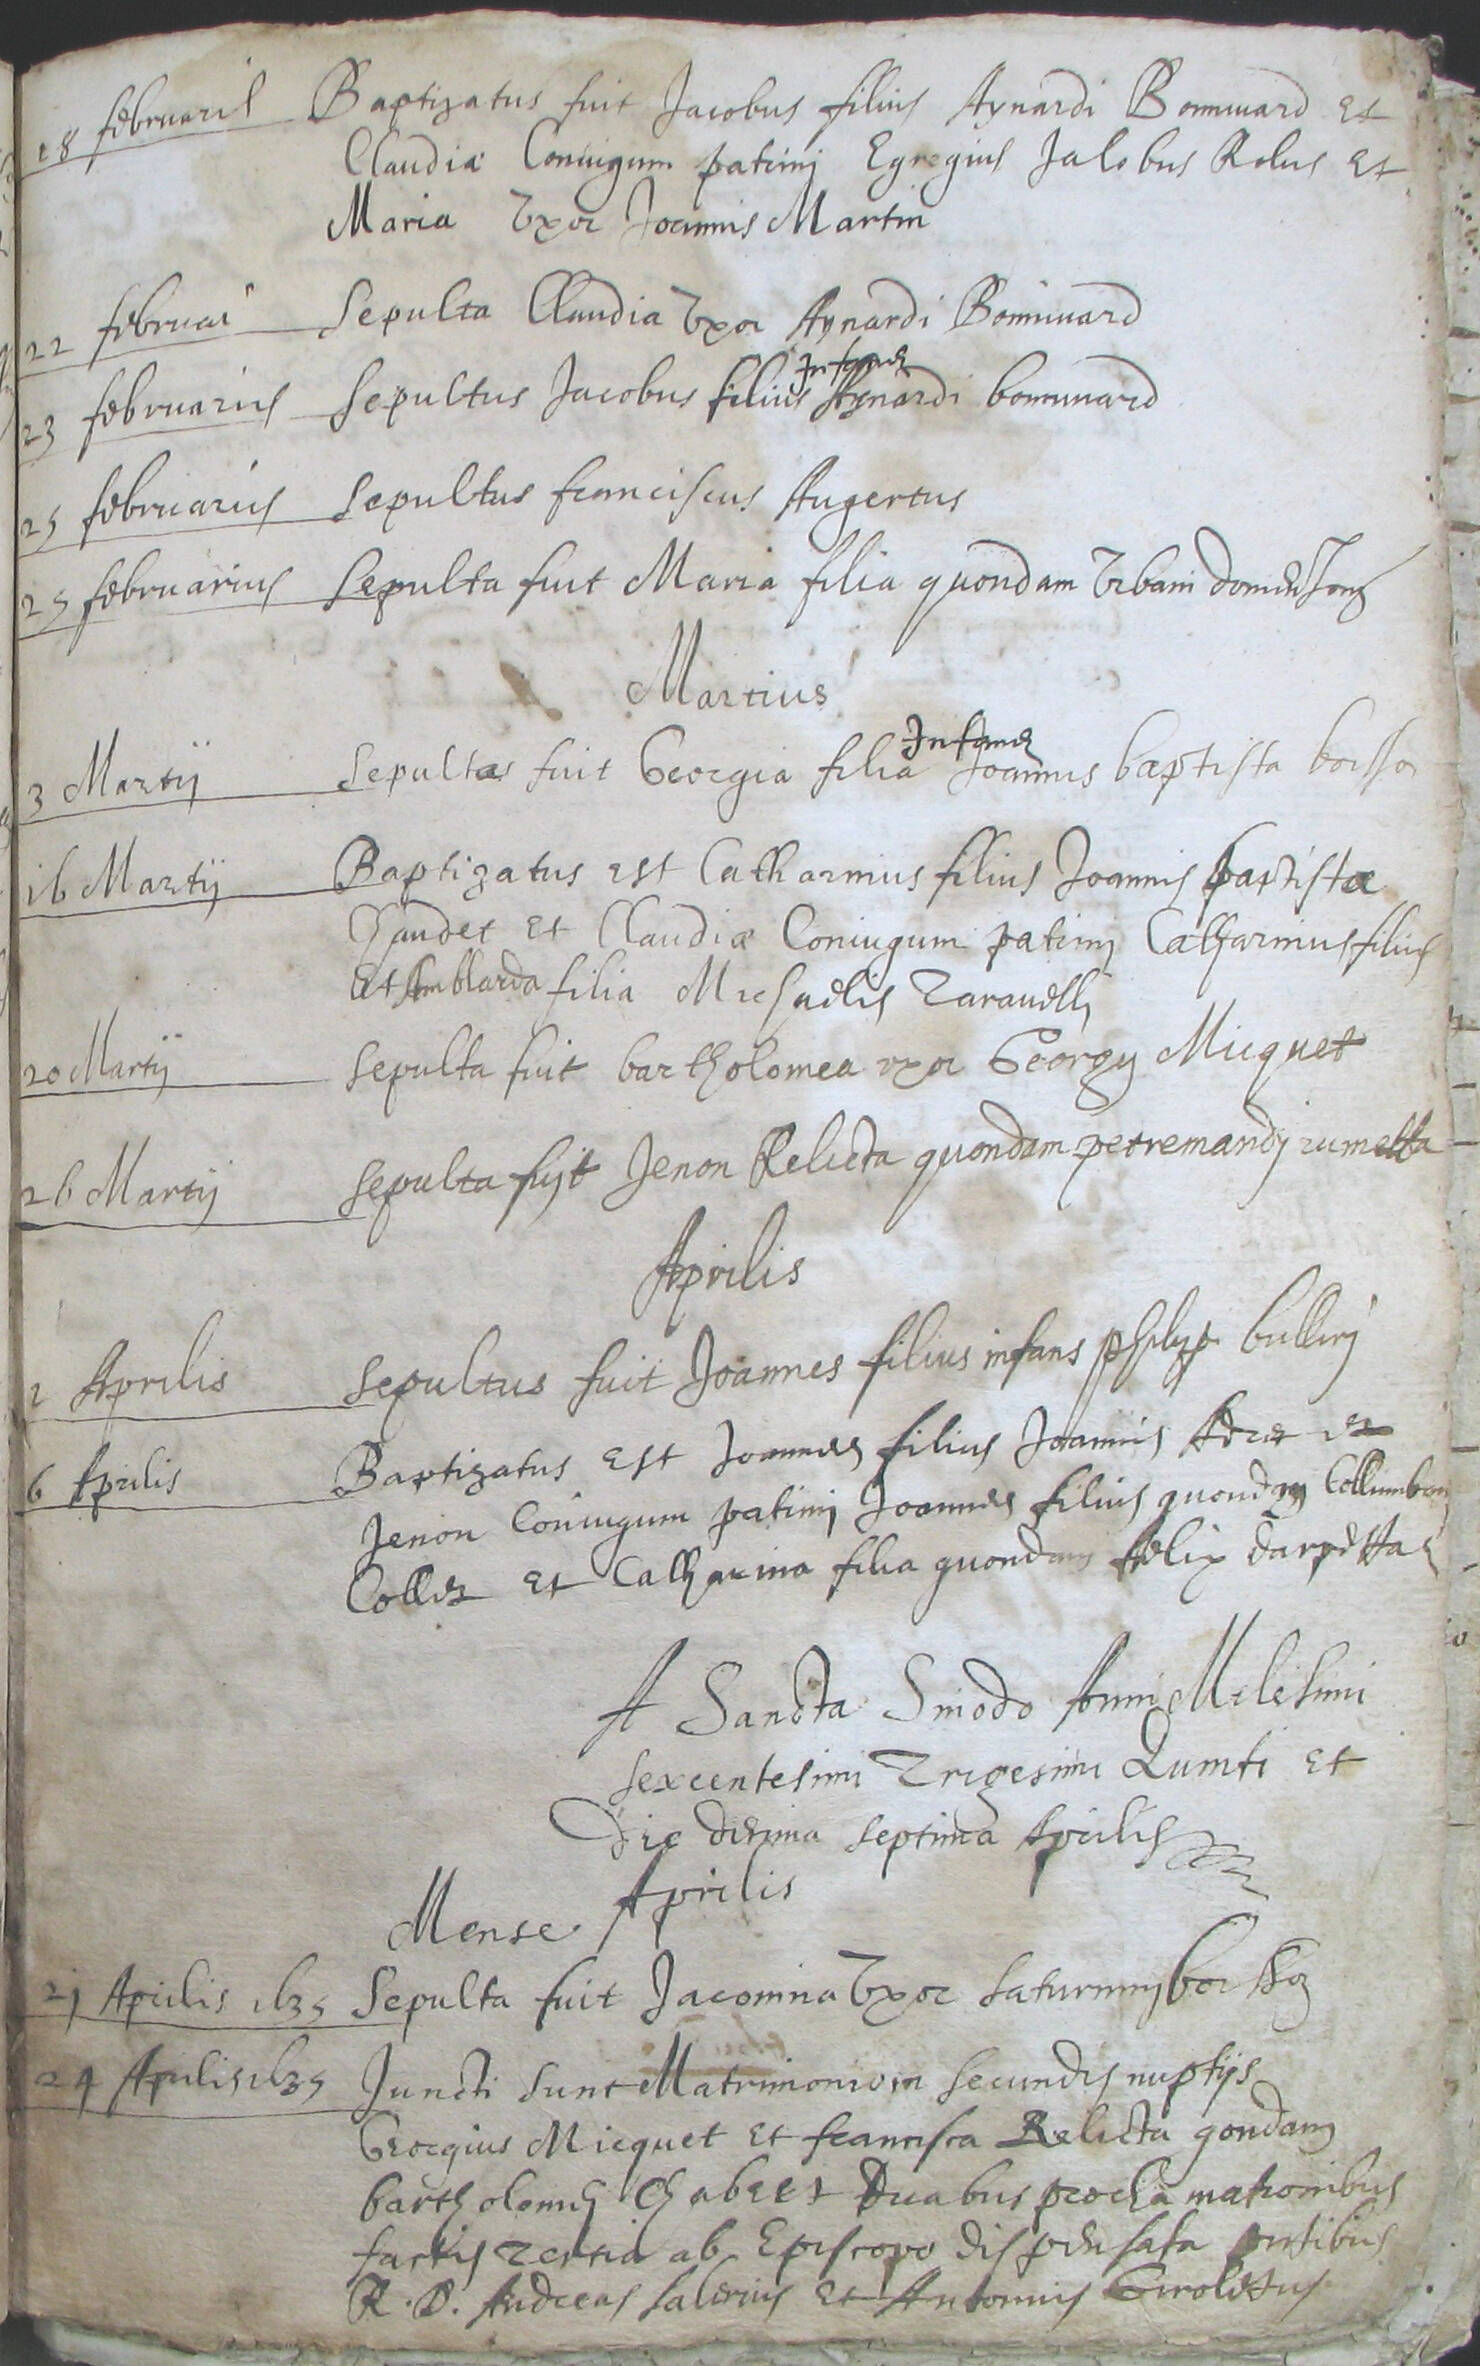 18 februarii Baptizatus fuit Jacobus filius Aynardi Bonnuard et
Claudiæ Coniugum patrinj Egregius Jacobus Rolus et
Maria Vxor Joannis Martin
22 februarii Sepulta Claudia Vxor Aynardi Bonnuard
23 februarius Sepultus Jacobus filius Infans Aynardi bonnuard
25 februarius Sepultus franciscus Augertus
25 februarius Sepulta fuit Maria filia quondam Vrbani
Martius
3 Martij Sepulta fuit Georgia filia Infans Joannis baptista
16 Martij Baptizatus est Catharinus filius Joannis baptistæ
et Claudiæ Coniugum patrinj Catharinus filius
et Amblarda filia Michaelis
20 Martij Sepulta fuit bartholomea vxor Georgij Micquet
26 Martij Sepulta fujt Jenon Relicta quondam petremandj
Aprilis
Aprilis Sepultus fuit Joannes filius infans
6 Aprilis Baptizatus est Joannes filius Joannis
Jenon Coniugum patrinj Joannes filius quondam
Collet et Catharina filia quondam felix
A Sancta Sinodo Anni Milesimi
sexcentesimi Trigesimi Quinti et
Die decima septima Aprilis
Mense Aprilis
21 Aprilis 1635 Sepulta fuit Jacomina Vxor Saturninj
24 Aprilis 1635 Juncti sunt Matrimonio in secundis nuptijs
Georgius Micquet et francisca Relicta qondam
bartholomej Chabert Duabus
factis Tertia ab Episcopo dispensata
R. D. Andreas Salerius et Antonius